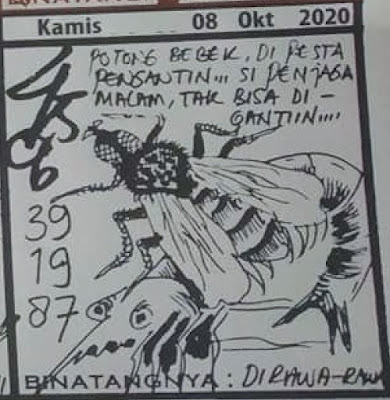 Kamis 08 Okt 2020
POTONG BEBEK, DI PESTA
PENGANTIN... SI PENJAGA
MALAM, TAK BISA DI -
GANTIIN....
39
19
87
BINATANGNYA : DIRAWA-RAWA